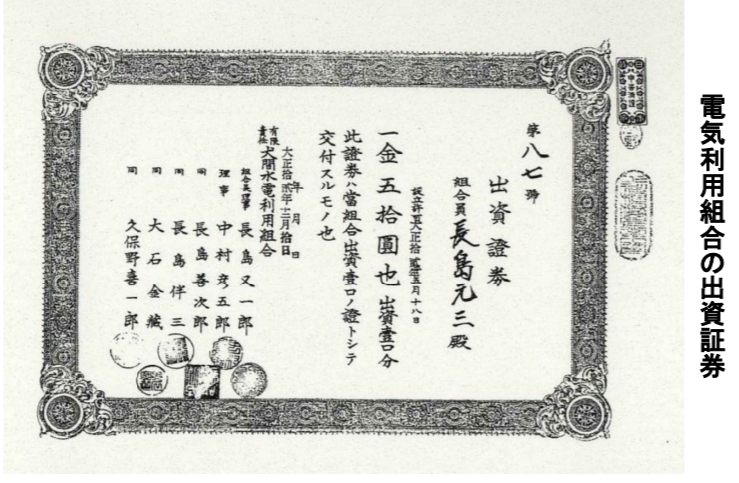 電気利用組合の出資証券
第八七号
出資證券
組合員 長島元三殿
設立許可大正拾貳年五月十八日
一金五拾圓也 出資壹口分
此證券ハ當組合出資壹口ノ證トシテ
交付スルモノ也
年月日
大正拾貳年十二月拾日
有限責任 大間水電利用組合
組合長理事 長島又一郎
理事 中村彦五郎
同 長島善次郎
同 長島伴三
同 大石金藏
同 久保野喜一郎